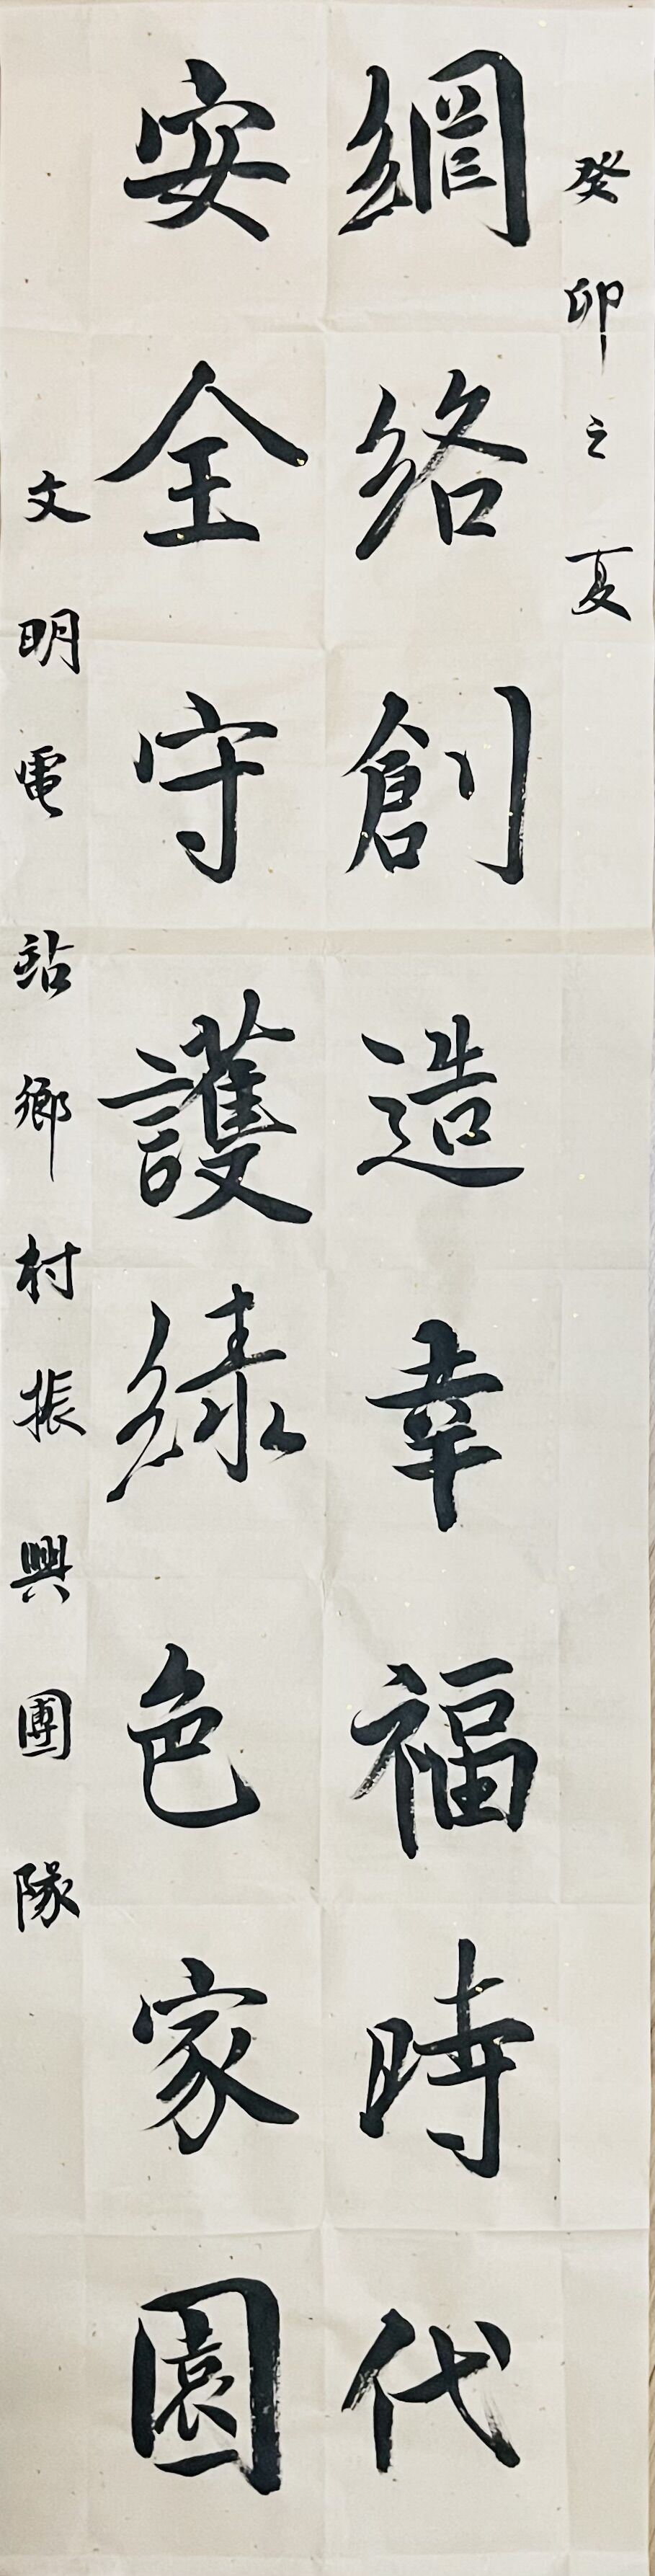 癸卯之夏
網絡創造幸福時代
安全守護緑色家園
文明電站鄉村振興團隊